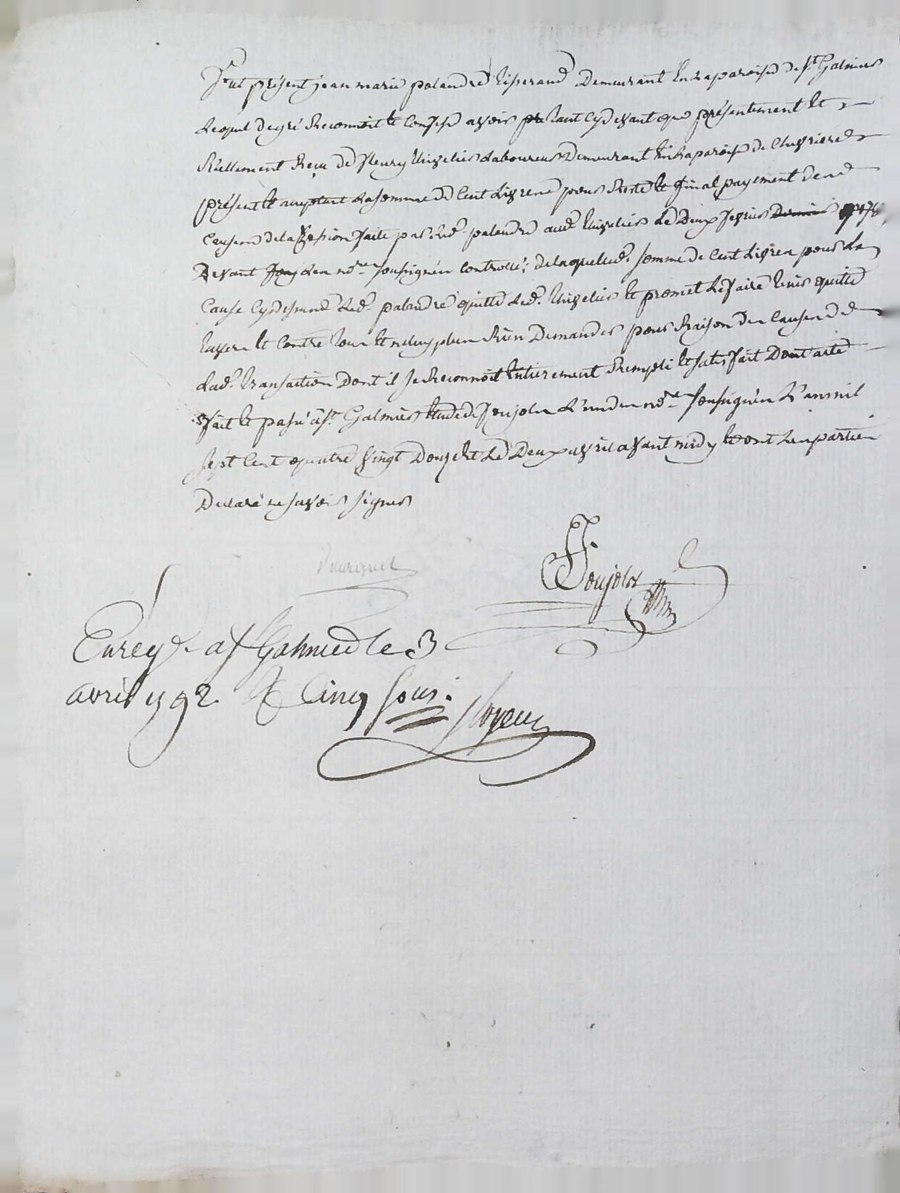 fut présent jean marie palandre tisserand Demeurant En La paroisse de st Galmier
Lequel de gré Reconnoit et Confesse avoir tant cy devant que présentement et
Réellement Reçu de fleury Laboureur Demeurant En La paroisse de
présent et acceptant La somme de Cent Livres pour Reste et final payement des
Causes de la faite par Led. palandre aud. Le Deux
Devant L'un des nres. soussignés controllé; de laquelle d. somme de Cent Livres pour La
Cause Cy dessus Led. palandre quitte Led. et promet Le faire tenir quitte
Envers et Contre tous et ne luy plus Rien Demander pour Raison des Causes de
Lad. transaction Dont il Se Reconnoit Entierement Rempli et satisfait Dont acte
fait et passé a st. Galmier Etude de Joujolex L'un des nres. soussignés L'an mil
sept Cent quatre Vingt Douze et Le Deux avril avant midy et ont Les parties
Declaré ne savoir signer
Joujolex
Enreg. a st Galmier le 3
avril 1792. R cinq sous.